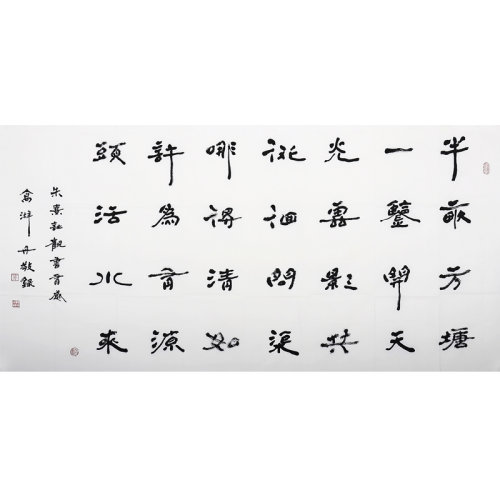 半畝方塘
一鑒開天
光雲影共
徘徊問渠
哪得清如
許為有源
頭活水來
朱熹詩觀書有感
丹敬錄